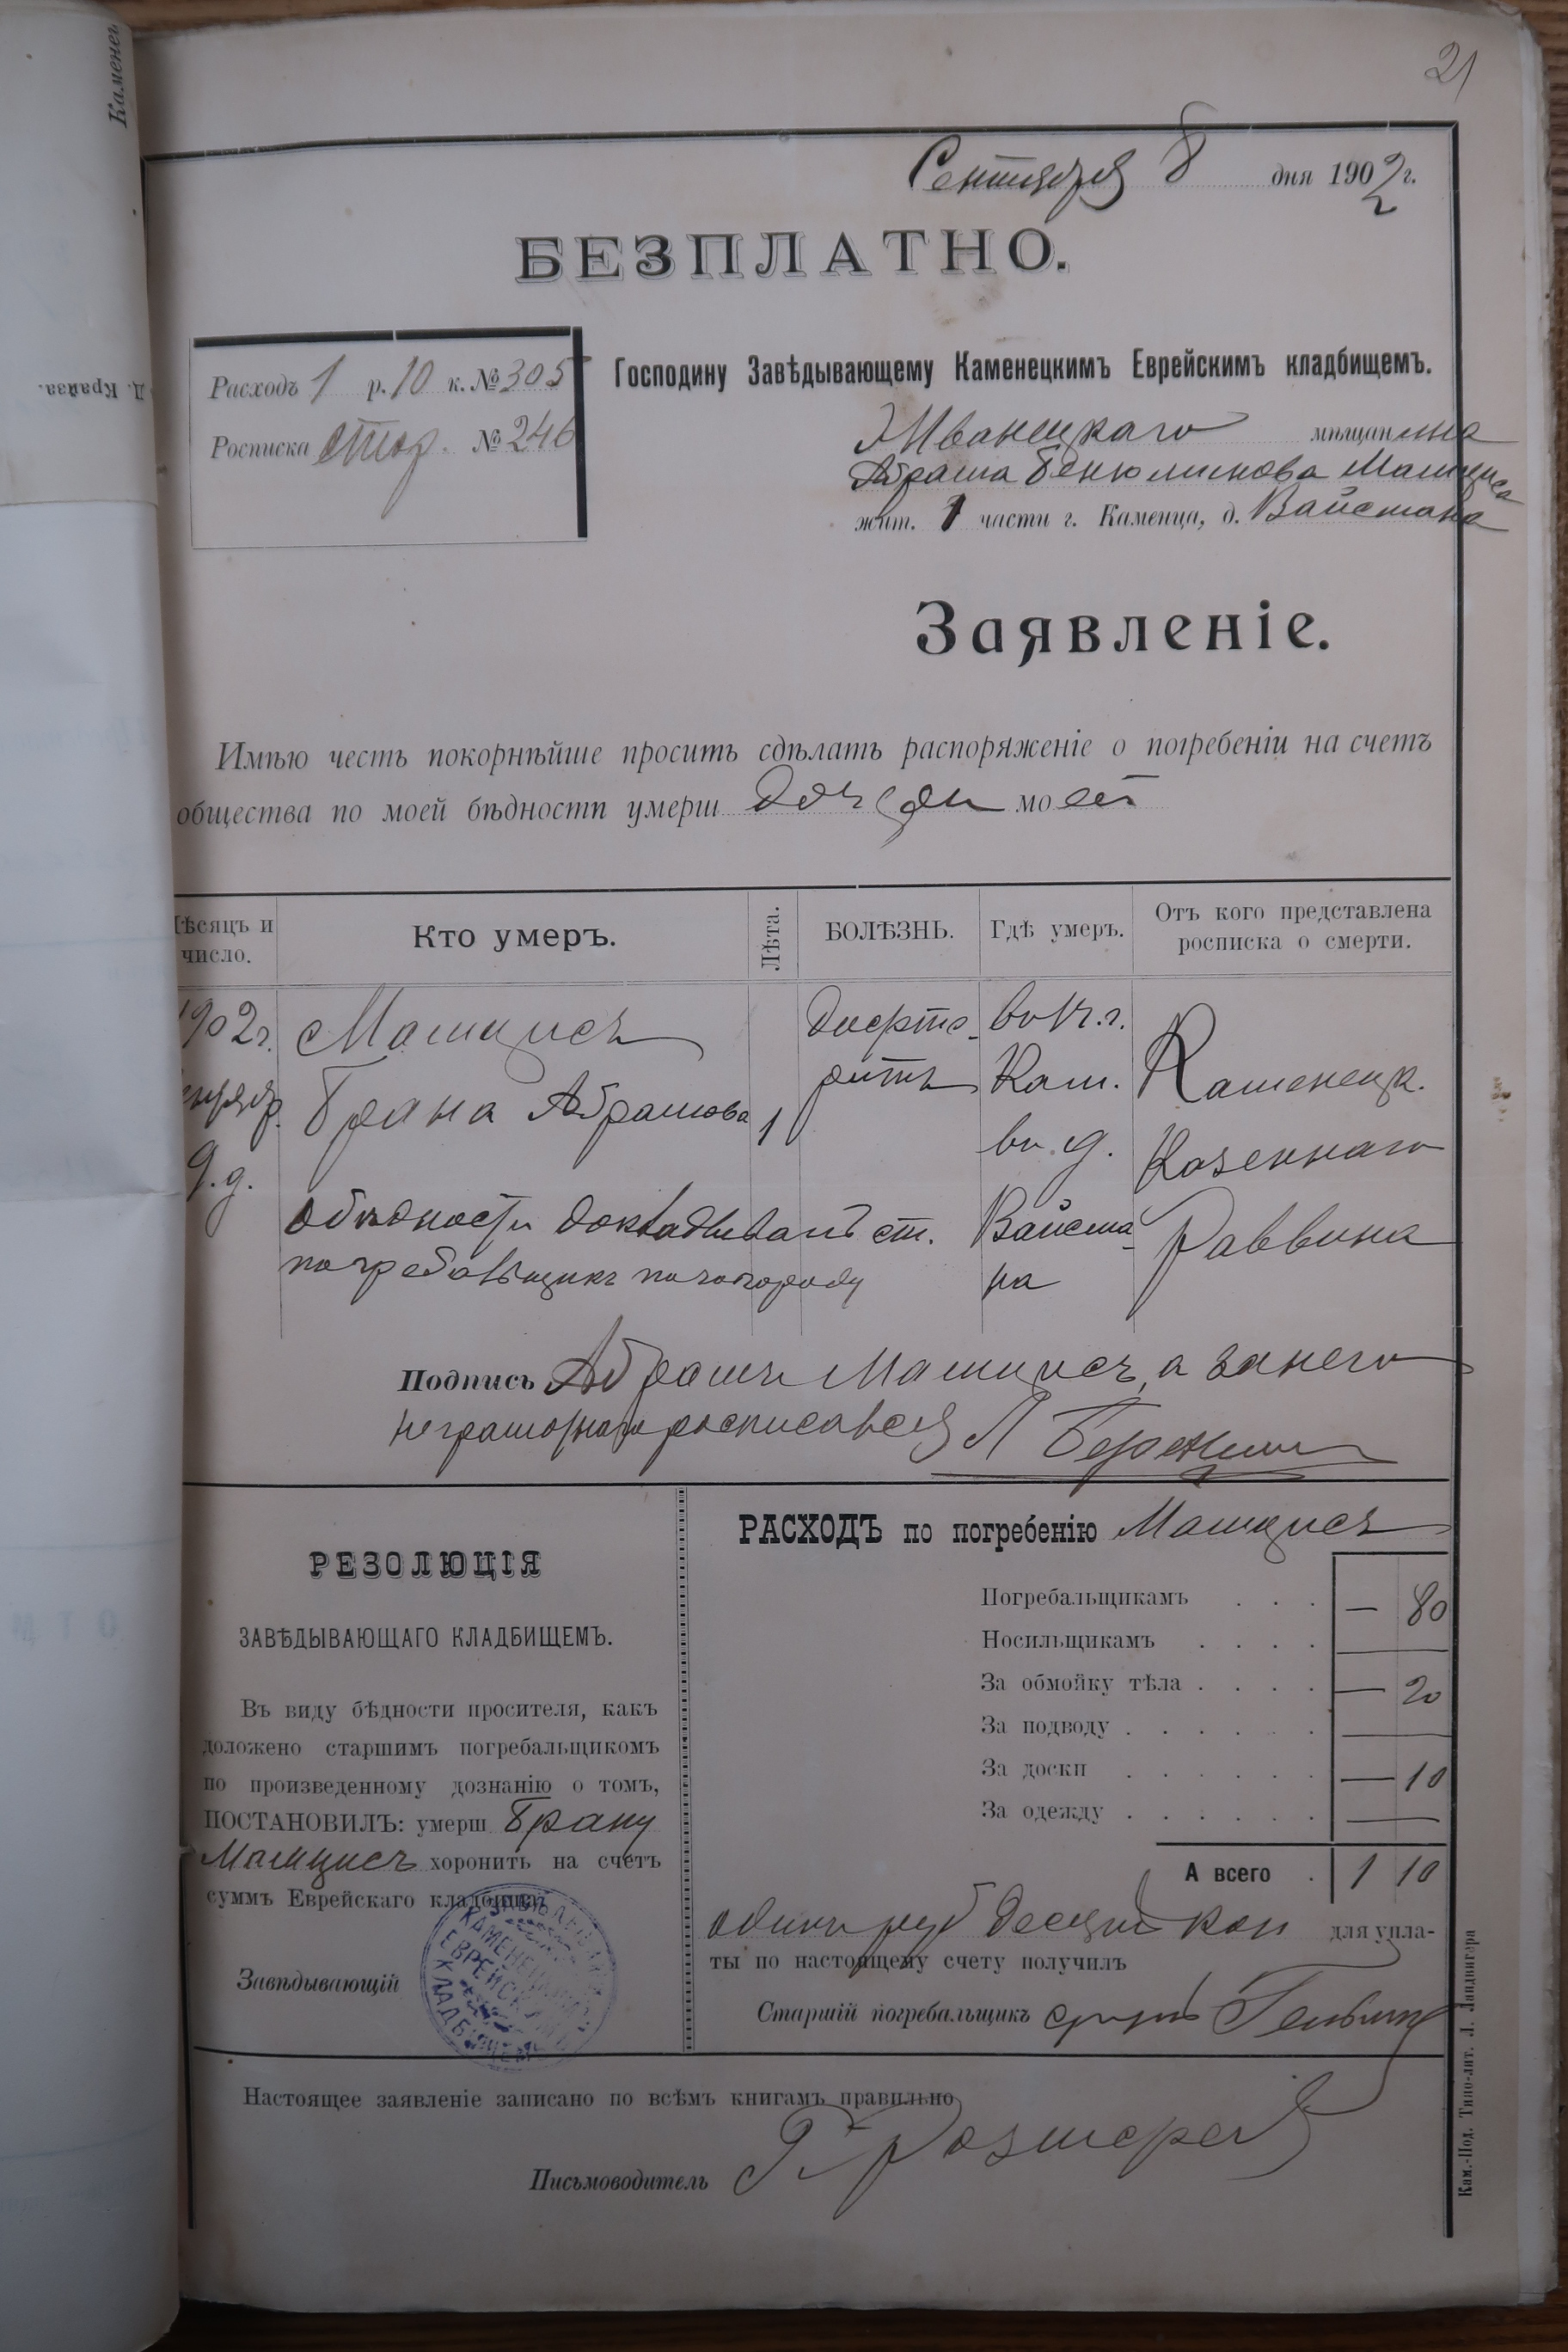 21
Каменец
Д. Крайза.
Сентября 8 дня 1902 г.
БЕЗПЛАТНО.
Расходъ 1 р. 10 к. № 305
Росписка № 246
Господину Завѣдывающему Каменецкимъ Еврейскимъ кладбищемъ.
Жванецкаго мѣщанина
Абрама Бенюминова
жит. 1 части г. Каменца, д. Вайсмана
Заявленіе.
Имѣю честь покорнѣйше просить сдѣлать распоряженіе о погребеніи на счетъ
общества по моей бѣдности умерш дочери моей
Мѣсяцъ и число. Кто умеръ. Лѣта. БОЛѢЗНЬ. Гдѣ умеръ. Отъ кого представлена росписка о смерти.
1902 г. Дифте- въ г.
ритъ Кам. Каменецк.
Брана Абрамова 1
въ д. Казеннаго
Вайсма- Раввина
на
о бѣдности докладывалъ ст.
погребальщикъ по
Подпись Абрамъ а за него
неграмотнаго росписався Л
РЕЗОЛЮЦІЯ
ЗАВѢДЫВАЮЩАГО КЛАДБИЩЕМЪ.
Въ виду бѣдности просителя, какъ
доложено старшимъ погребальщикомъ
по произведенному дознанію о томъ,
ПОСТАНОВИЛЪ: умерш Брану
хоронить на счетъ
суммъ Еврейскаго кладбища.
Завѣдывающій
ЗАВѢДЫВАНІЕ КАМЕНЕЦКИМЪ ЕВРЕЙСКИМЪ КЛАДБИЩЕМЪ
РАСХОДЪ по погребенію
Погребальщикамъ . . . — 80
Носильщикамъ . . . . —
За обмойку тѣла . . . . — 20
За подводу . . . . . . —
За доски . . . . . . — 10
За одежду . . . . . . —
А всего . 1 10
одинъ руб десять коп для упла-
ты по настоящему счету получилъ
Старшій погребальщикъ
Настоящее заявленіе записано по всѣмъ книгамъ правильно
Письмоводитель
Кам.-Под. Типо-лит. Л. Ландвигера